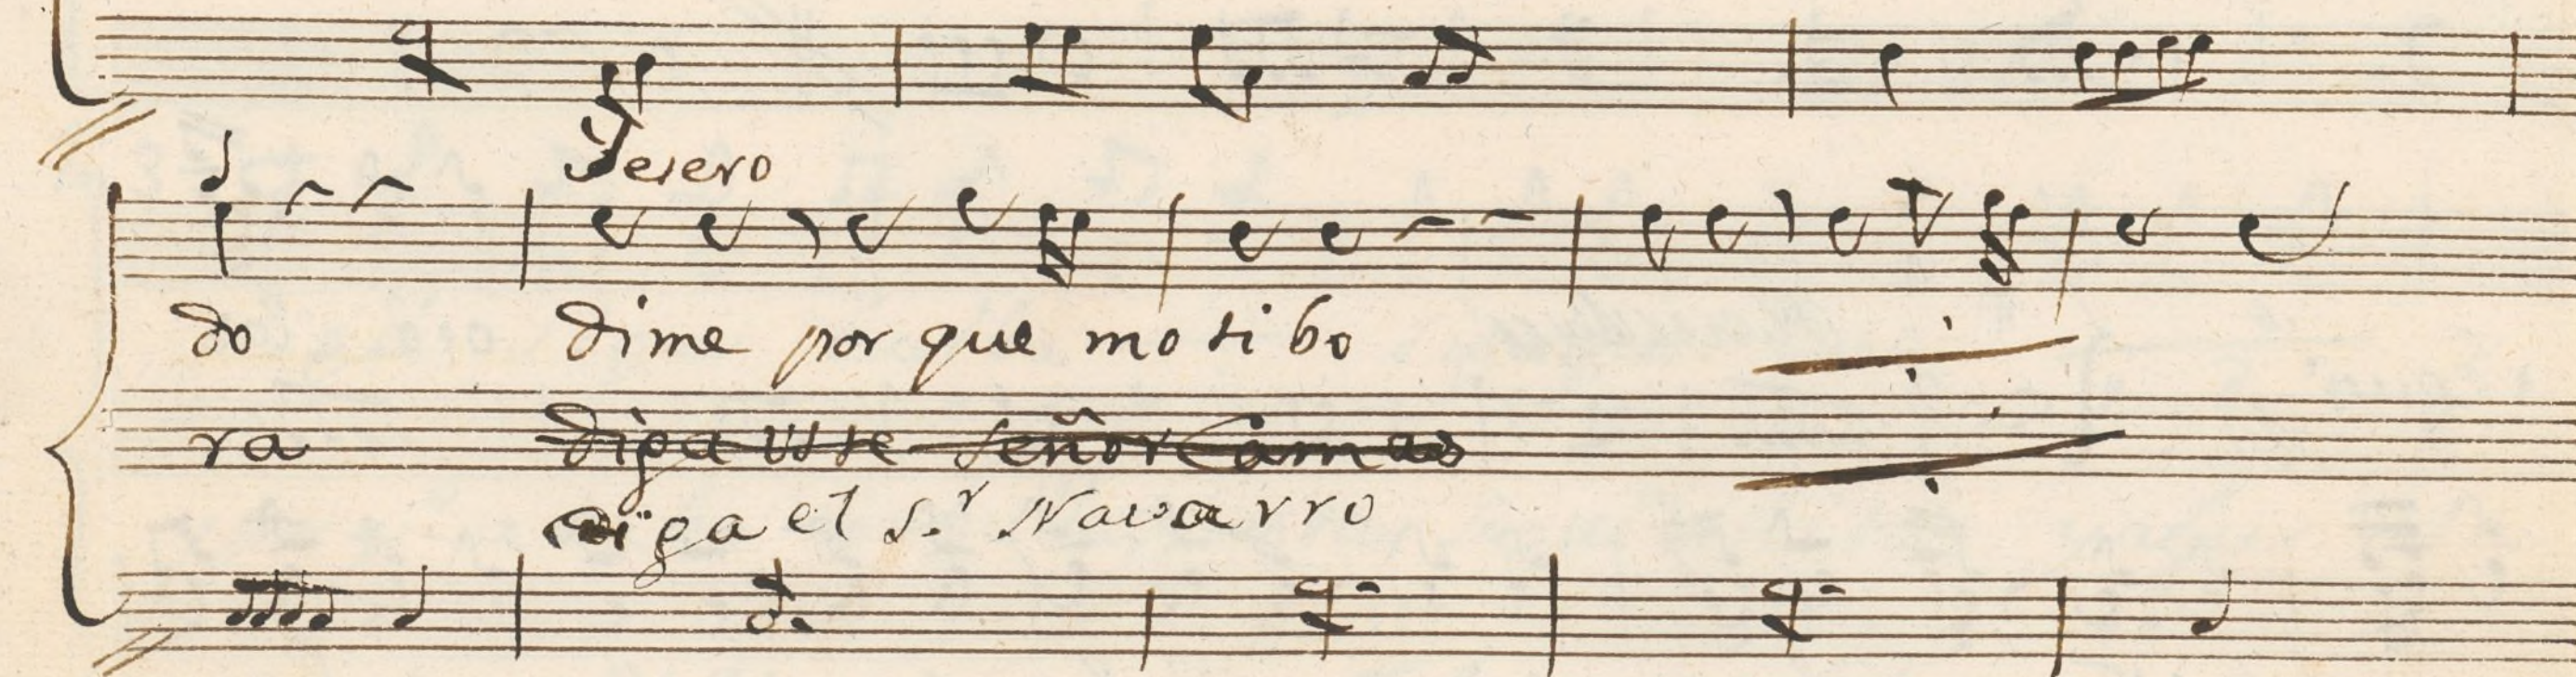 Yesero
do dime por que motibo
ra diga uste señor Camas
diga el S.r Navarro